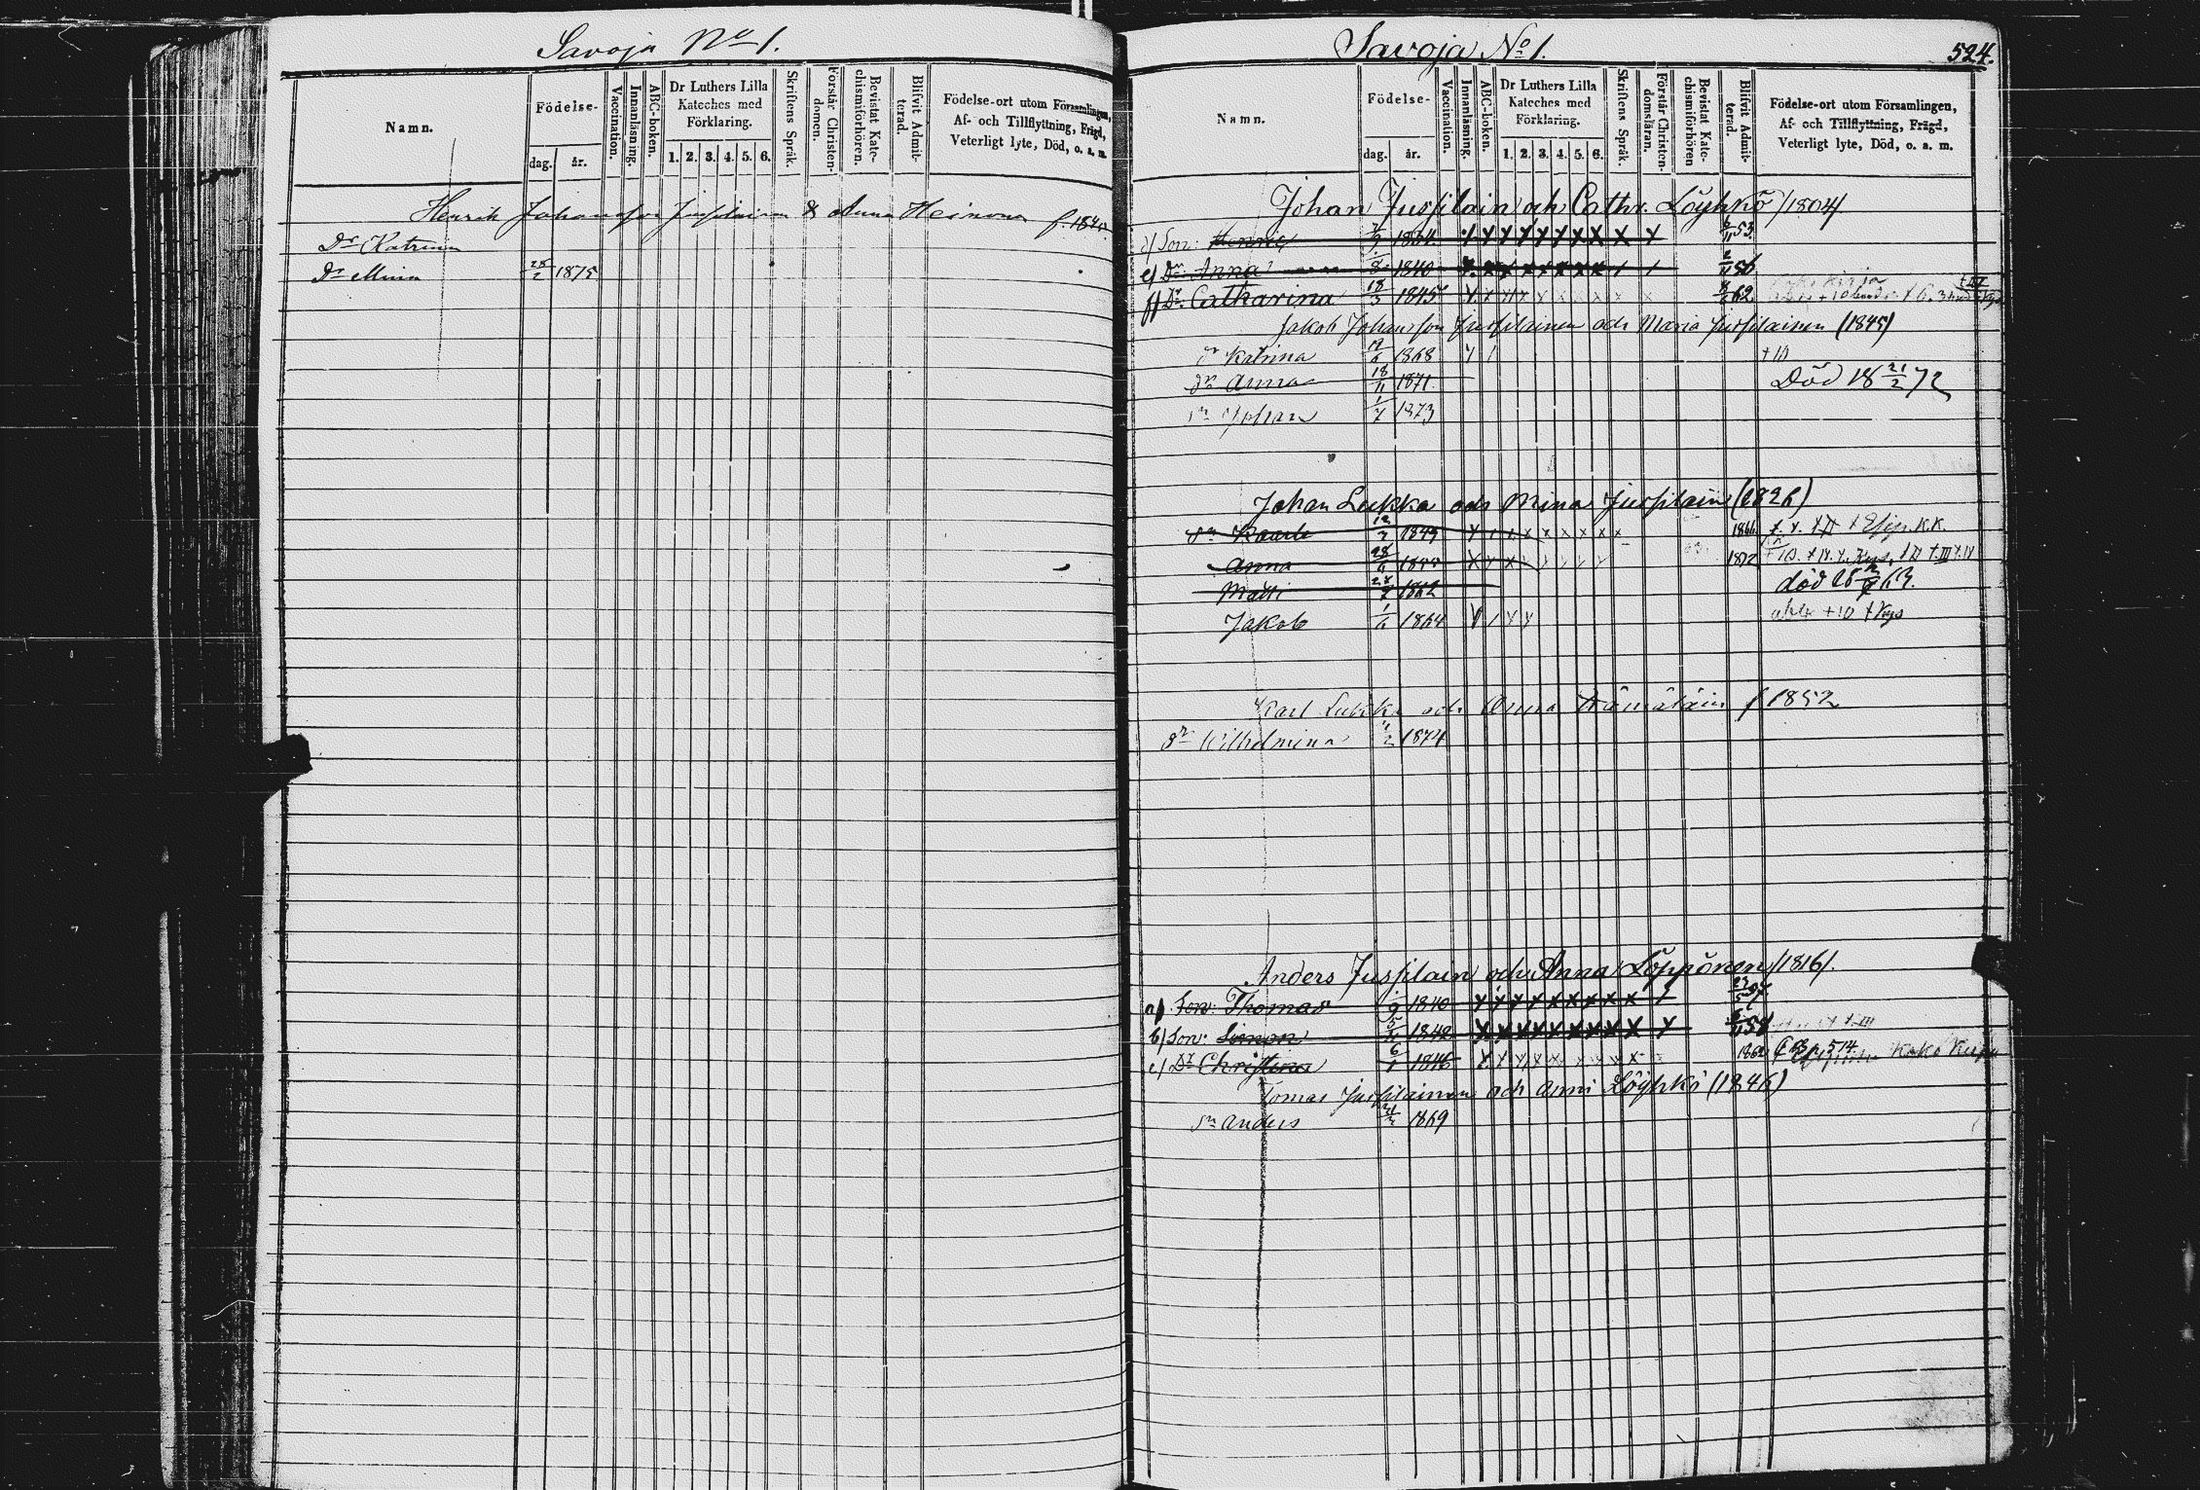 Savoja No 1.
Namn.
Födelse-
dag.
år.
Vaccination.
Innanläsning.
ABC-boken.
Dr Luthers Lilla
Kateches med
Förklaring.
1. 2. 3. 4. 5. 6.
Skriftens Språk.
Förstår Christen-
domen.
Bevistat Kate-
chismiförhören.
Blifvit Admit-
terad.
Födelse-ort utom Församlingen,
Af- och Tillflyttning, Frägd,
Veterligt lyte, Död, o. a. m.
Henrik Johansson Jussilainen & Anna Heinonen f. 184
Dr Katrina
Dr Miina 28/2 1875
Savoja No 1.
524.
Namn.
Födelse-
dag.
år.
Vaccination.
Innanläsning.
ABC-boken.
Dr Luthers Lilla
Kateches med
Förklaring.
1. 2. 3. 4. 5. 6.
Skriftens Språk.
Förstår Christen-
domsläran.
Bevistat Kate-
chismiförhören
Blifvit Admit-
terad.
Födelse-ort utom Församlingen,
Af- och Tillflyttning, Frägd,
Veterligt lyte, Död, o. a. m.
Johan Jussilain och Cathr. Löyhkö /1804/
d/ Son: 53.
e/ Dr Anna 1840 56
f/ Dr Catharina 18/3 1845 62
Jakob Johansson Jussilainen och Maria Jussilainen (1845)
dr Katrina 1868 + 10
dr Anna 18/11 1871 Död 18 21/2 72
sn Johan 1/7 1873
Johan Lukka och Mina Jussilain (1826)
sn Kaarle 1849 1866
Anna 1872
Matti 1862 död 63.
Jakob 1864 + 10 + Kys
Karl Lukka och Anna f 1852
dr Wilhelmina 1874
Anders Jussilain och Anna Löppönen /1816/.
a/ Son: Thomas 1840
b/ Son: Simon 1842
c/ Dr Christina 1846 514
Tomas Jussilainen och Anni Löyhkö (1846)
sn Anders 1869